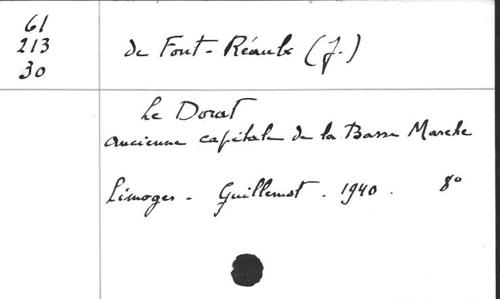 61
213
30
de Font-Réaulx (J.)
Le Dorat
ancienne capitale de la Basse Marche
Limoges - Guillemot. 1940. 8°